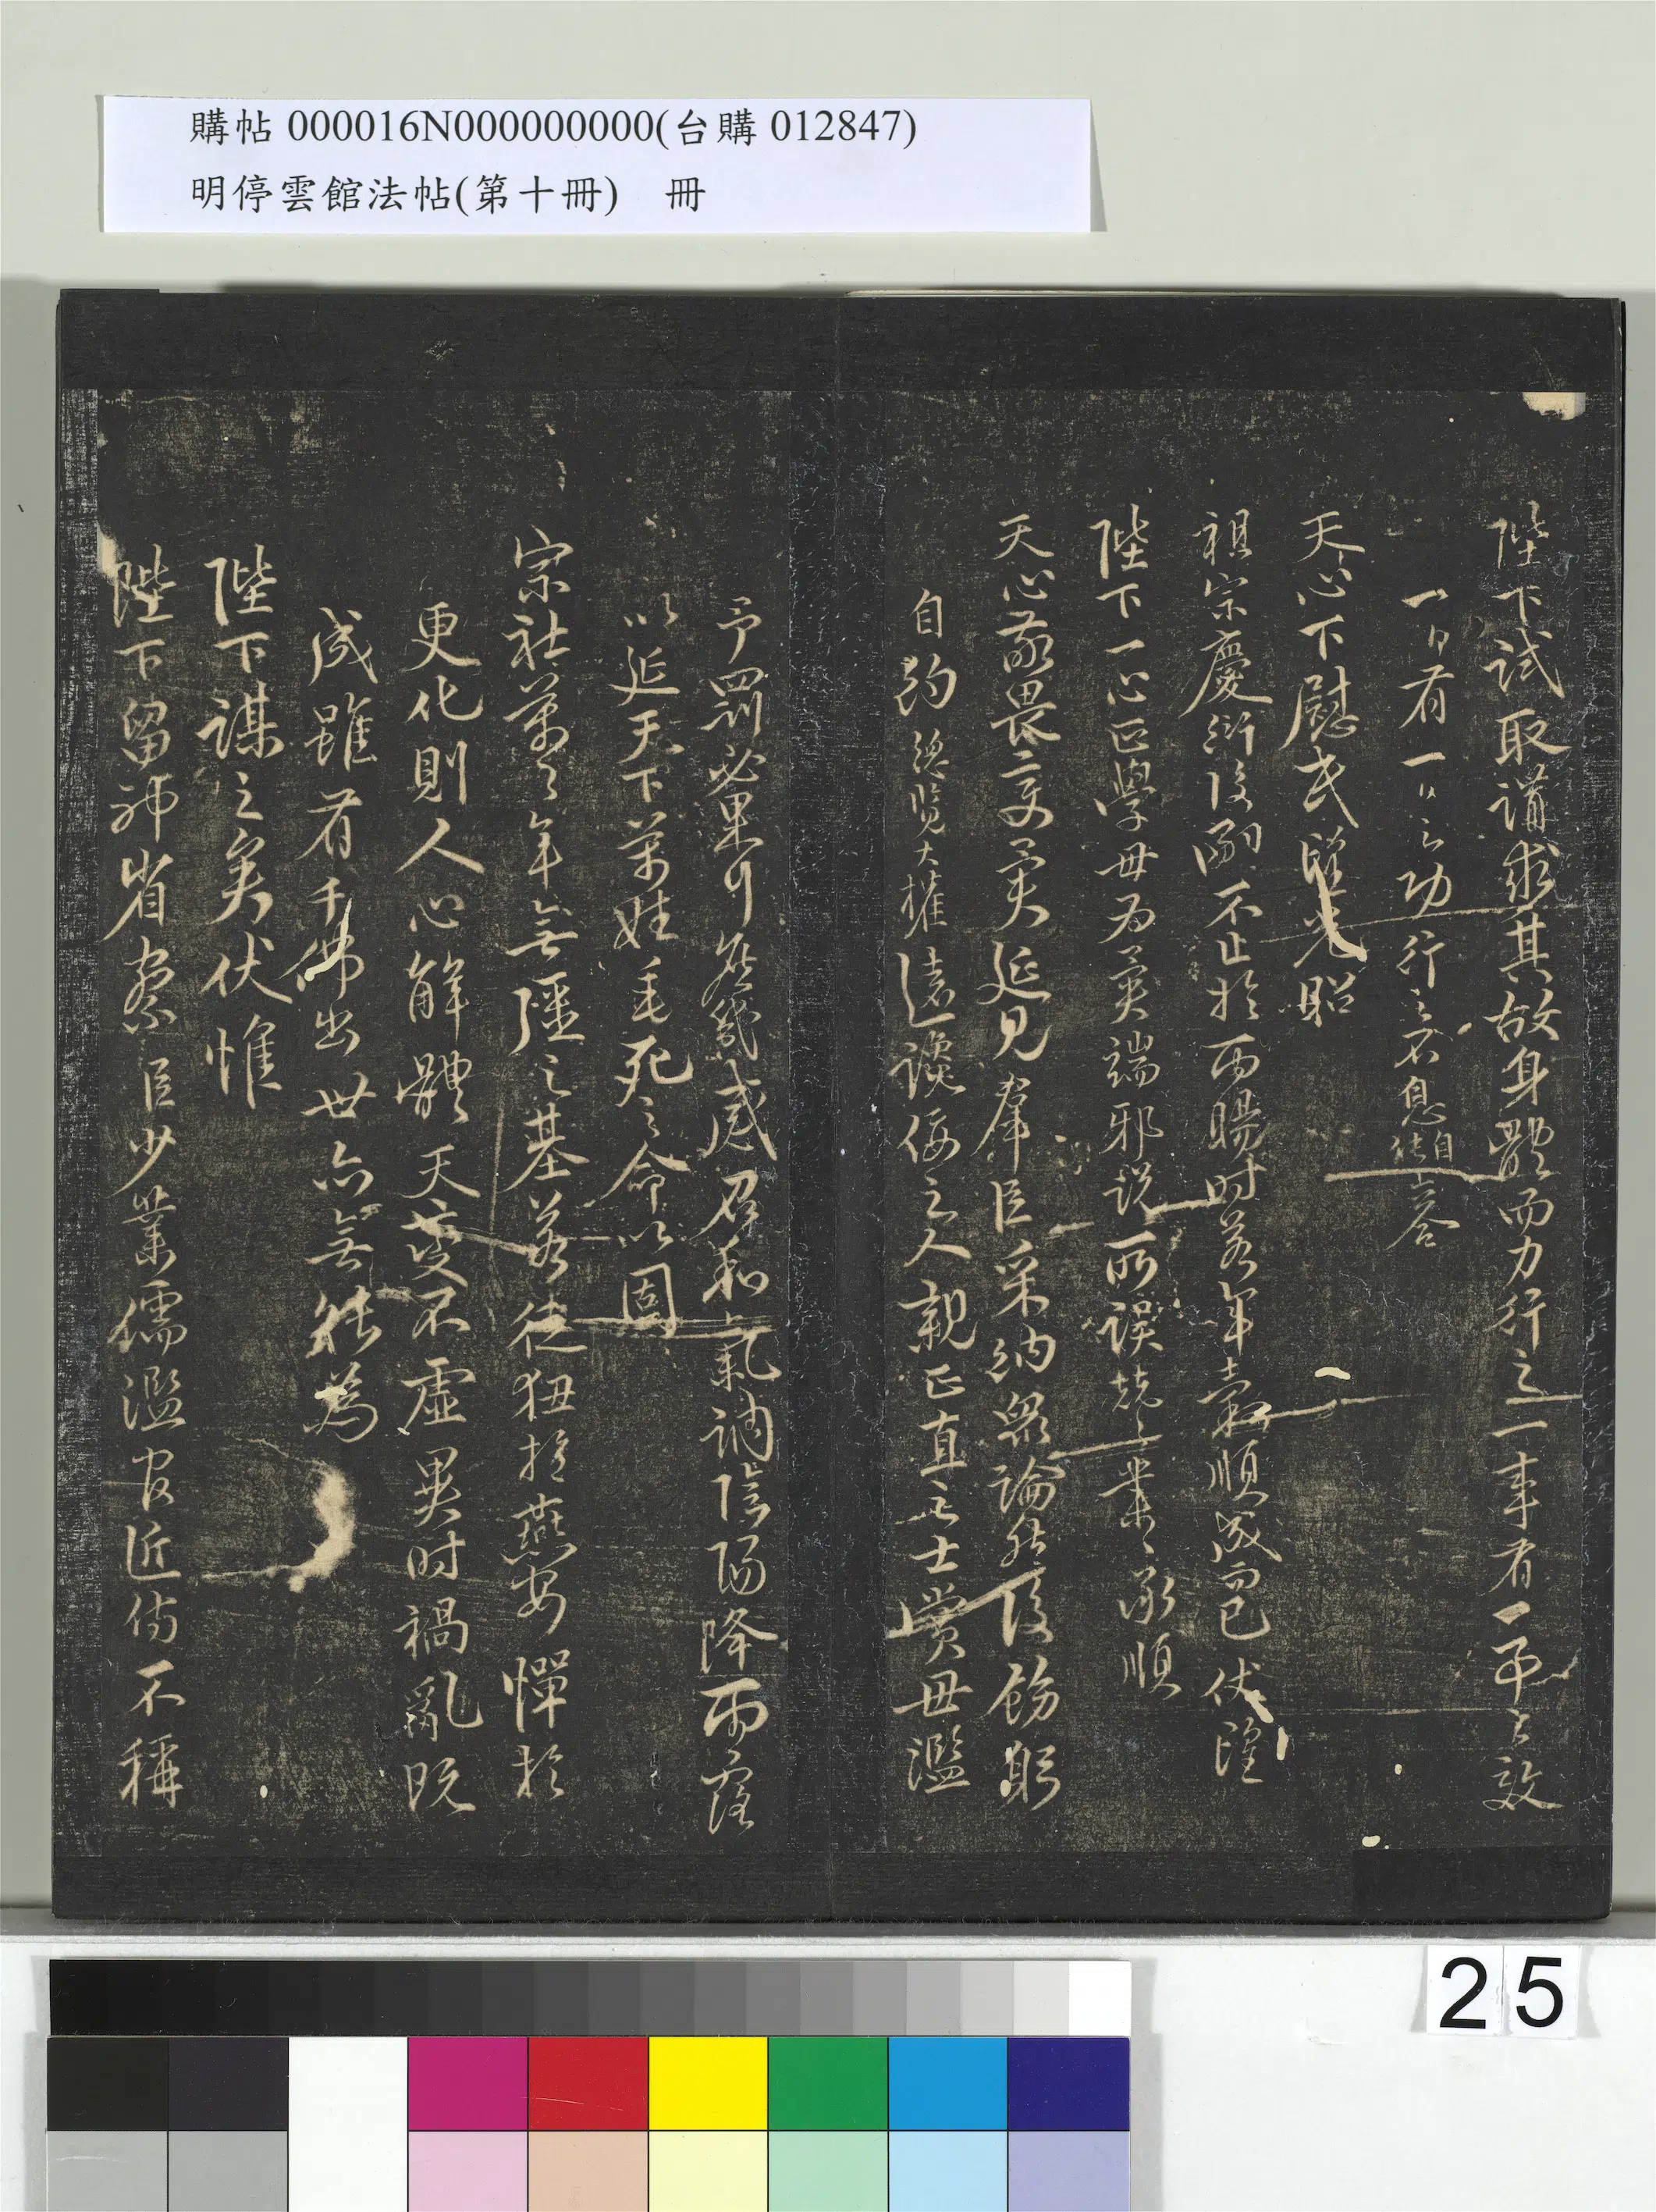 購帖 000016N000000000(台購 012847)
明停雲館法帖(第十冊) 冊
陛下試取講求其故身體而力行之一事有一事之效
一日有一日之功行之不息自能上答
天心下慰民望光昭
祖宗慶衍後嗣不止於雨暘時若年穀順成而已伏望
陛下一心正學毋為異端邪說所誤兢兢業業承順
天心敬畏變異延見群臣采納眾論然後飭躬
自約總覽大權遠讒佞之人親正直之士賞毋濫
予罰必果行庶幾感召和氣調陰陽降雨露
以延天下萬姓垂死之命以固
宗社萬萬年無疆之基若徒狃於燕安憚於
更化則人心解體天變不虛異時禍亂既
成雖有千佛出世亦無能為
陛下謀之矣伏惟
陛下留神省察臣少業儒濫官近侍不稱
25